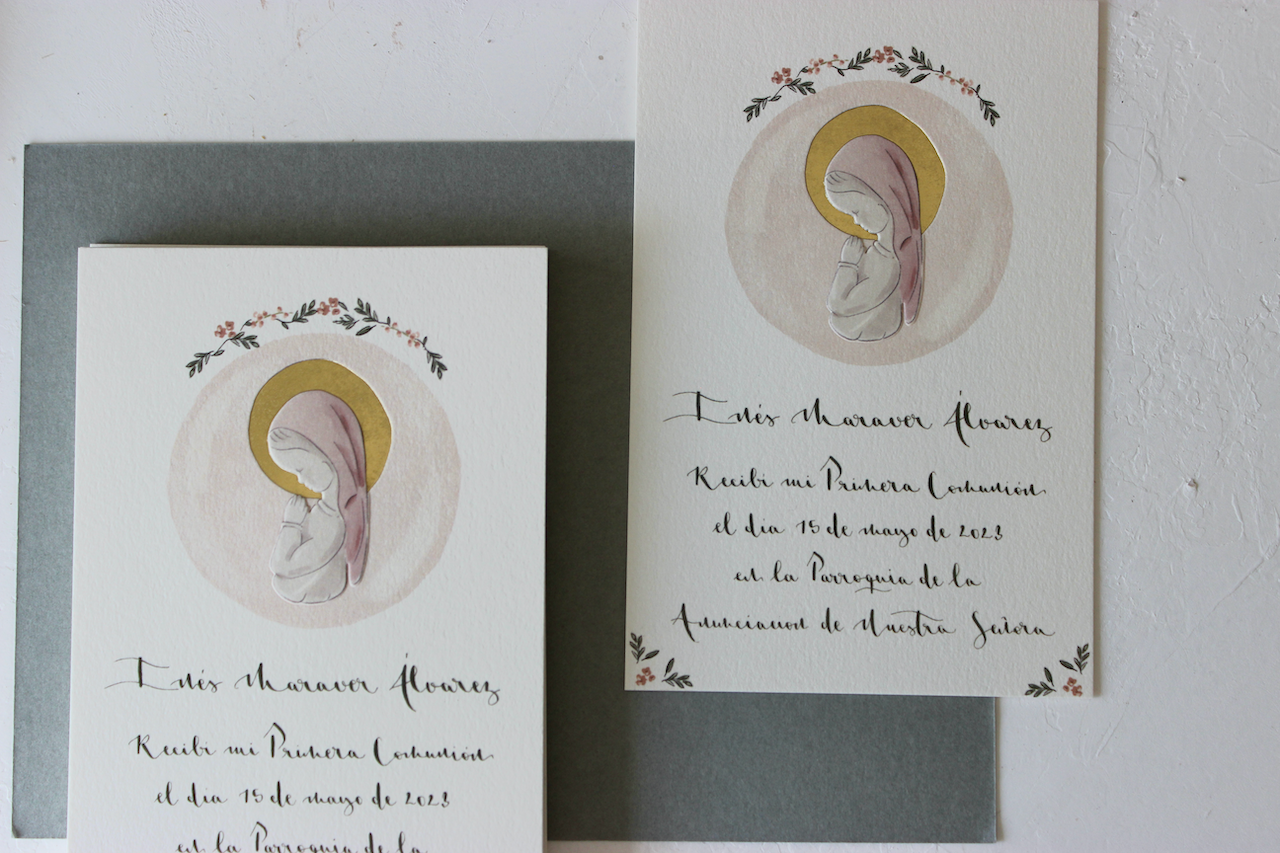 Inés Maraver Álvarez
Recibí mi Primera Comunión
el día 15 de mayo de 2023
en la Parroquia de la
Inés Maraver Álvarez
Recibí mi Primera Comunión
el día 15 de mayo de 2023
en la Parroquia de la
Anunciación de Nuestra Señora